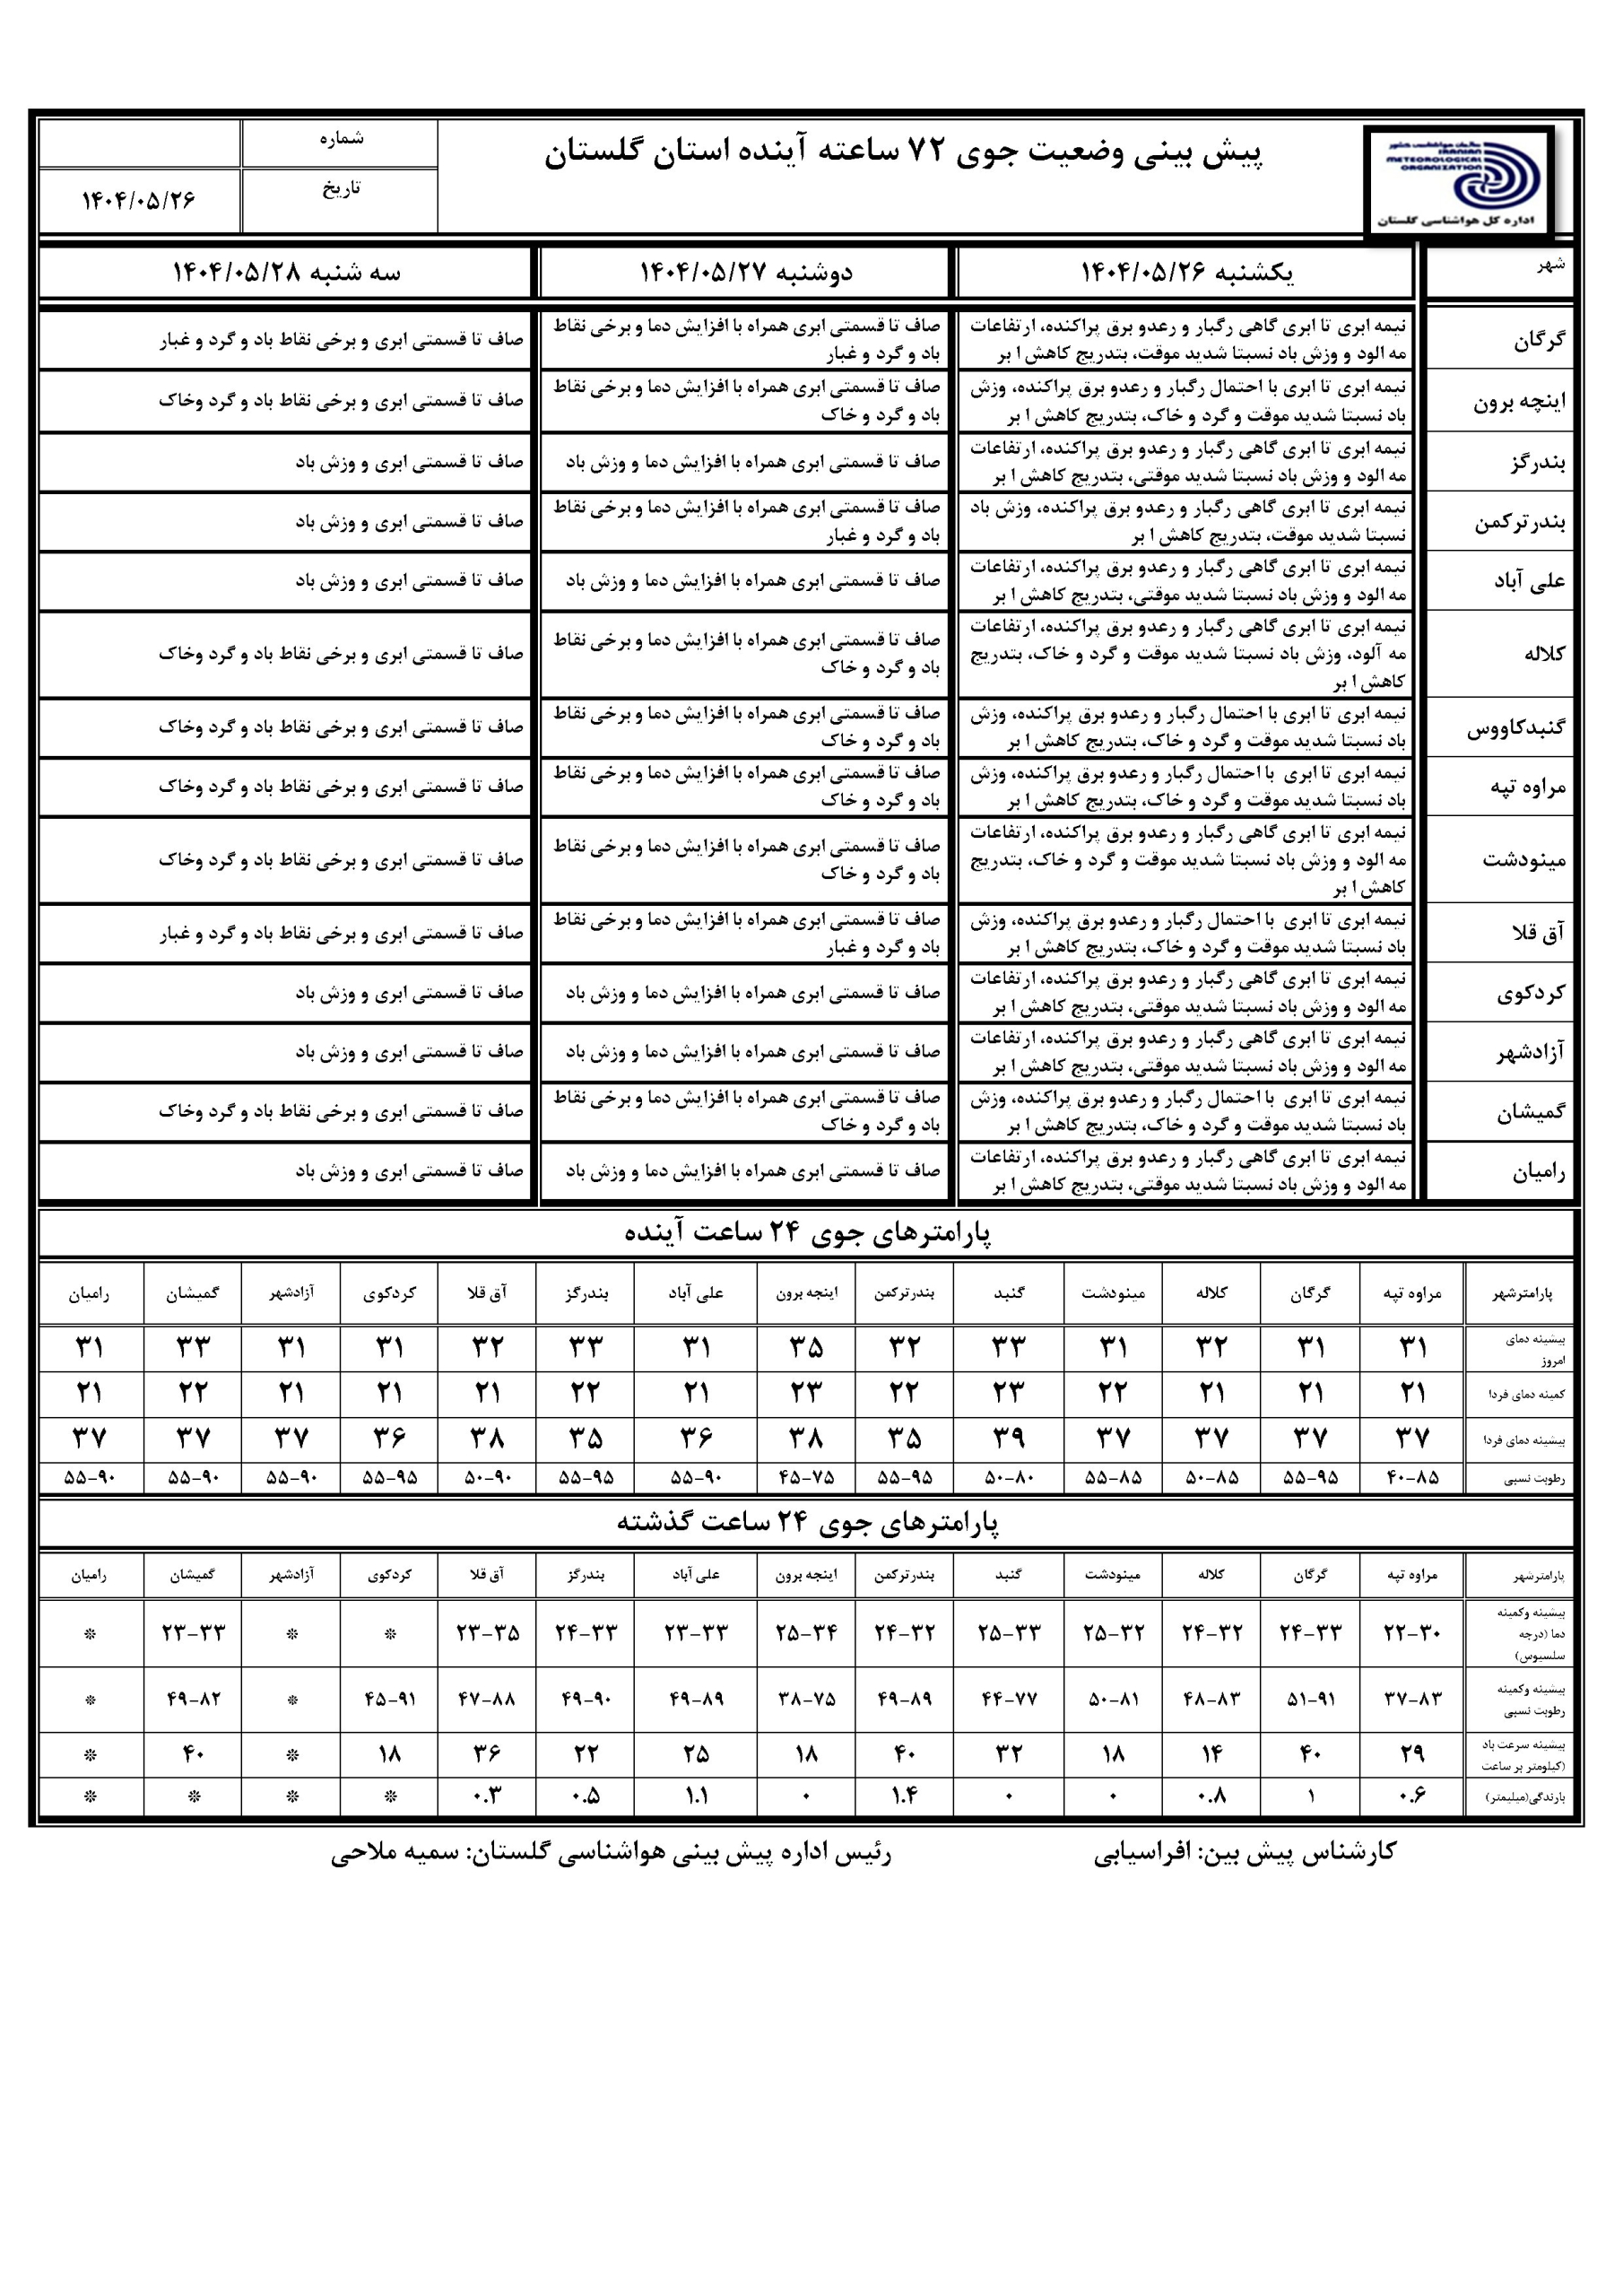 سازمان هواشناسی کشور
IRANIAN
METEOROLOGICAL
ORGANIZATION
اداره کل هواشناسی گلستان
پیش بینی وضعیت جوی ۷۲ ساعته آینده استان گلستان
شماره
تاریخ ۱۴۰۴/۰۵/۲۶
شهر یکشنبه ۱۴۰۴/۰۵/۲۶ دوشنبه ۱۴۰۴/۰۵/۲۷ سه شنبه ۱۴۰۴/۰۵/۲۸
گرگان
نیمه ابری تا ابری گاهی رگبار و رعدو برق پراکنده، ارتفاعات
مه الود و وزش باد نسبتا شدید موقت، بتدریج کاهش ا بر
صاف تا قسمتی ابری همراه با افزایش دما و برخی نقاط
باد و گرد و غبار
صاف تا قسمتی ابری و برخی نقاط باد و گرد و غبار
اینچه برون
نیمه ابری تا ابری با احتمال رگبار و رعدو برق پراکنده، وزش
باد نسبتا شدید موقت و گرد و خاک، بتدریج کاهش ا بر
صاف تا قسمتی ابری همراه با افزایش دما و برخی نقاط
باد و گرد و خاک
صاف تا قسمتی ابری و برخی نقاط باد و گرد وخاک
بندرگز
نیمه ابری تا ابری گاهی رگبار و رعدو برق پراکنده، ارتفاعات
مه الود و وزش باد نسبتا شدید موقتی، بتدریج کاهش ا بر
صاف تا قسمتی ابری همراه با افزایش دما و وزش باد
صاف تا قسمتی ابری و وزش باد
بندرترکمن
نیمه ابری تا ابری گاهی رگبار و رعدو برق پراکنده، وزش باد
نسبتا شدید موقت، بتدریج کاهش ا بر
صاف تا قسمتی ابری همراه با افزایش دما و برخی نقاط
باد و گرد و غبار
صاف تا قسمتی ابری و وزش باد
علی آباد
نیمه ابری تا ابری گاهی رگبار و رعدو برق پراکنده، ارتفاعات
مه الود و وزش باد نسبتا شدید موقتی، بتدریج کاهش ا بر
صاف تا قسمتی ابری همراه با افزایش دما و وزش باد
صاف تا قسمتی ابری و وزش باد
کلاله
نیمه ابری تا ابری گاهی رگبار و رعدو برق پراکنده، ارتفاعات
مه آلود، وزش باد نسبتا شدید موقت و گرد و خاک، بتدریج
کاهش ا بر
صاف تا قسمتی ابری همراه با افزایش دما و برخی نقاط
باد و گرد و خاک
صاف تا قسمتی ابری و برخی نقاط باد و گرد وخاک
گنبدکاووس
نیمه ابری تا ابری با احتمال رگبار و رعدو برق پراکنده، وزش
باد نسبتا شدید موقت و گرد و خاک، بتدریج کاهش ا بر
صاف تا قسمتی ابری همراه با افزایش دما و برخی نقاط
باد و گرد و خاک
صاف تا قسمتی ابری و برخی نقاط باد و گرد وخاک
مراوه تپه
نیمه ابری تا ابری با احتمال رگبار و رعدو برق پراکنده، وزش
باد نسبتا شدید موقت و گرد و خاک، بتدریج کاهش ا بر
صاف تا قسمتی ابری همراه با افزایش دما و برخی نقاط
باد و گرد و خاک
صاف تا قسمتی ابری و برخی نقاط باد و گرد وخاک
مینودشت
نیمه ابری تا ابری گاهی رگبار و رعدو برق پراکنده، ارتفاعات
مه الود و وزش باد نسبتا شدید موقت و گرد و خاک، بتدریج
کاهش ا بر
صاف تا قسمتی ابری همراه با افزایش دما و برخی نقاط
باد و گرد و خاک
صاف تا قسمتی ابری و برخی نقاط باد و گرد وخاک
آق قلا
نیمه ابری تا ابری با احتمال رگبار و رعدو برق پراکنده، وزش
باد نسبتا شدید موقت و گرد و خاک، بتدریج کاهش ا بر
صاف تا قسمتی ابری همراه با افزایش دما و برخی نقاط
باد و گرد و غبار
صاف تا قسمتی ابری و برخی نقاط باد و گرد و غبار
کردکوی
نیمه ابری تا ابری گاهی رگبار و رعدو برق پراکنده، ارتفاعات
مه الود و وزش باد نسبتا شدید موقتی، بتدریج کاهش ا بر
صاف تا قسمتی ابری همراه با افزایش دما و وزش باد
صاف تا قسمتی ابری و وزش باد
آزادشهر
نیمه ابری تا ابری گاهی رگبار و رعدو برق پراکنده، ارتفاعات
مه الود و وزش باد نسبتا شدید موقتی، بتدریج کاهش ا بر
صاف تا قسمتی ابری همراه با افزایش دما و وزش باد
صاف تا قسمتی ابری و وزش باد
گمیشان
نیمه ابری تا ابری با احتمال رگبار و رعدو برق پراکنده، وزش
باد نسبتا شدید موقت و گرد و خاک، بتدریج کاهش ا بر
صاف تا قسمتی ابری همراه با افزایش دما و برخی نقاط
باد و گرد و خاک
صاف تا قسمتی ابری و برخی نقاط باد و گرد وخاک
رامیان
نیمه ابری تا ابری گاهی رگبار و رعدو برق پراکنده، ارتفاعات
مه الود و وزش باد نسبتا شدید موقتی، بتدریج کاهش ا بر
صاف تا قسمتی ابری همراه با افزایش دما و وزش باد
صاف تا قسمتی ابری و وزش باد
پارامترهای جوی ۲۴ ساعت آینده
پارامترشهر مراوه تپه گرگان کلاله مینودشت گنبد بندرترکمن اینجه برون علی آباد بندرگز آق قلا کردکوی آزادشهر گمیشان رامیان
بیشینه دمای
امروز
۳۱ ۳۱ ۳۲ ۳۱ ۳۳ ۳۲ ۳۵ ۳۱ ۳۳ ۳۲ ۳۱ ۳۱ ۳۳ ۳۱
کمینه دمای فردا ۲۱ ۲۱ ۲۱ ۲۲ ۲۳ ۲۲ ۲۳ ۲۱ ۲۲ ۲۱ ۲۱ ۲۱ ۲۲ ۲۱
بیشینه دمای فردا ۳۷ ۳۷ ۳۷ ۳۷ ۳۹ ۳۵ ۳۸ ۳۶ ۳۵ ۳۸ ۳۶ ۳۷ ۳۷ ۳۷
رطوبت نسبی ۴۰-۸۵ ۵۵-۹۵ ۵۰-۸۵ ۵۵-۸۵ ۵۰-۸۰ ۵۵-۹۵ ۴۵-۷۵ ۵۵-۹۰ ۵۵-۹۵ ۵۰-۹۰ ۵۵-۹۵ ۵۵-۹۰ ۵۵-۹۰ ۵۵-۹۰
پارامترهای جوی ۲۴ ساعت گذشته
پارامترشهر مراوه تپه گرگان کلاله مینودشت گنبد بندرترکمن اینجه برون علی آباد بندرگز آق قلا کردکوی آزادشهر گمیشان رامیان
بیشینه وکمینه
دما (درجه
سلسیوس)
۲۲-۳۰ ۲۴-۳۳ ۲۴-۳۲ ۲۵-۳۲ ۲۵-۳۳ ۲۴-۳۲ ۲۵-۳۴ ۲۳-۳۳ ۲۴-۳۳ ۲۳-۳۵ * * ۲۳-۳۳ *
بیشینه وکمینه
رطوبت نسبی
۳۷-۸۳ ۵۱-۹۱ ۴۸-۸۳ ۵۰-۸۱ ۴۴-۷۷ ۴۹-۸۹ ۳۸-۷۵ ۴۹-۸۹ ۴۹-۹۰ ۴۷-۸۸ ۴۵-۹۱ * ۴۹-۸۲ *
بیشینه سرعت باد
(کیلومتر بر ساعت
۲۹ ۴۰ ۱۴ ۱۸ ۳۲ ۴۰ ۱۸ ۲۵ ۲۲ ۳۶ ۱۸ * ۴۰ *
بارندگی(میلیمتر) ۰.۶ ۱ ۰.۸ ۰ ۰ ۱.۴ ۰ ۱.۱ ۰.۵ ۰.۳ * * * *
کارشناس پیش بین: افراسیابی رئیس اداره پیش بینی هواشناسی گلستان: سمیه ملاحی